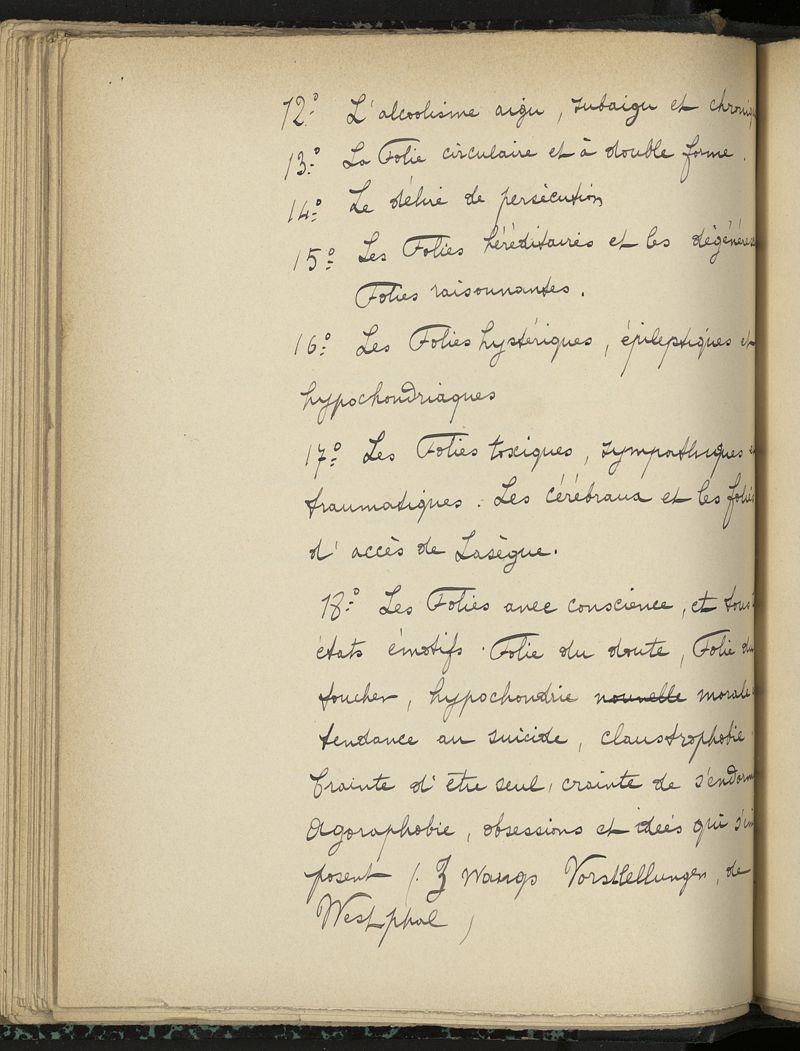 12º L'alcoolisme aigu, subaigu et chroniq
13º La Folie circulaire et à double forme.
14º Le délire de persécution
15º Les Folies héréditaires et les dégénéres
Folies raisonnantes.
16º Les Folies hystériques, épileptiques et
hypochondriaques
17º Les Folies toxiques, sympathiques e
traumatiques. Les cérébraux et les folies
d'accès de Lasègue.
18º Les Folies avec conscience, et tous
états émotifs. Folie du doute, Folie du
toucher, hypochondrie nouvelle morale
tendance au suicide, claustrophobie
Crainte d'etre seul, crainte de s'endorm
Agoraphobie, obsessions et ideés qui s'im
posent (Zwangs Vorstellungen, de
Westphal)